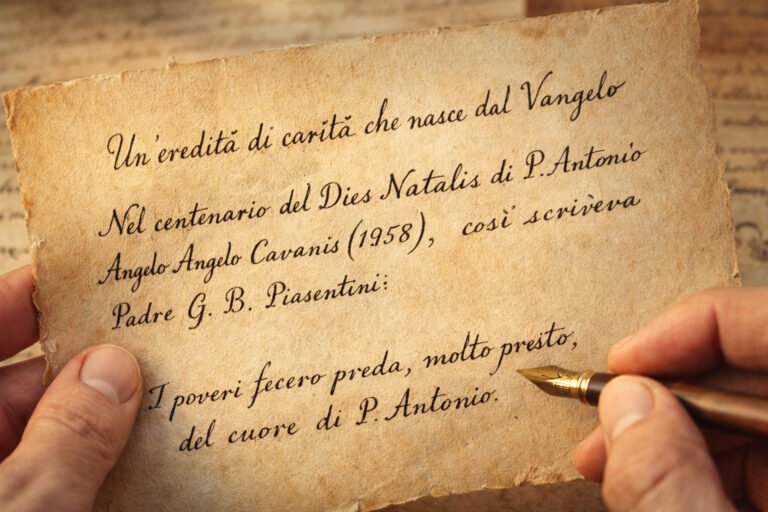 Un'eredită di carită che nasce dal Vangelo
Nel centenario del Dies Natalis di P. Antonio
Angelo Angelo Cavanis (1958), così scriveva
Padre G. B. Piasentini:
I poveri fecero preda, molto presto,
del cuore di P. Antonio.